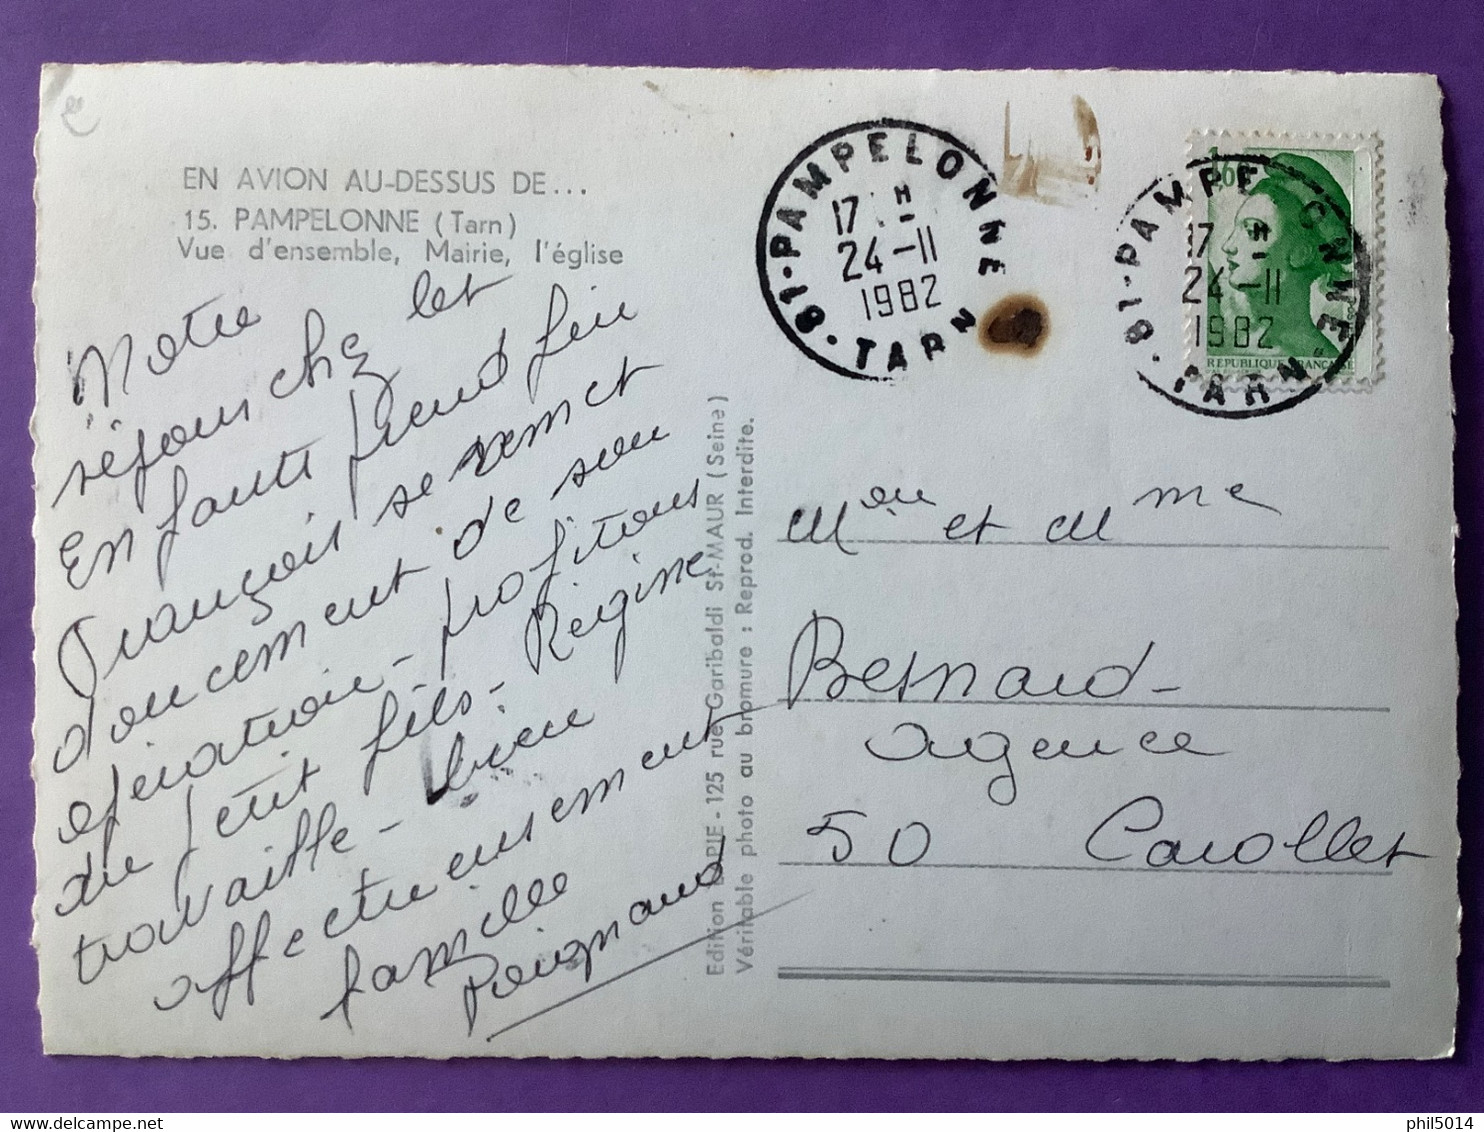 EN AVION AU-DESSUS DE...
15. PAMPELONNE (Tarn)
Vue d'ensemble, Mairie, l'église
Notre
séjour chez les
Enfants prend fin
François se remet
doucement de son
opération - profitons
du petit fils - Régine
travaille - bien
affectueusement
famille
Poignand
Edition LAPIE - 125 rue Garibaldi St-MAUR (Seine)
Véritable photo au bromure : Reprod. Interdite.
81-PAMPELONNE
17 H
24-11
1982
TARN
1,60
REPUBLIQUE FRANÇAISE
81-PAMPELONNE
17 H
24-11
1982
TARN
Mon et Mme
Besnard -
agence
50 Carolles
phil5014